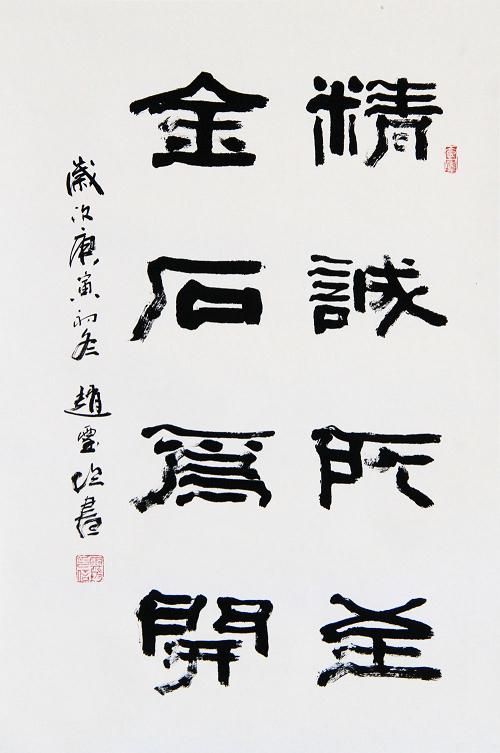 精誠所至
金石為開
歲次庚寅初冬 趙雲 書